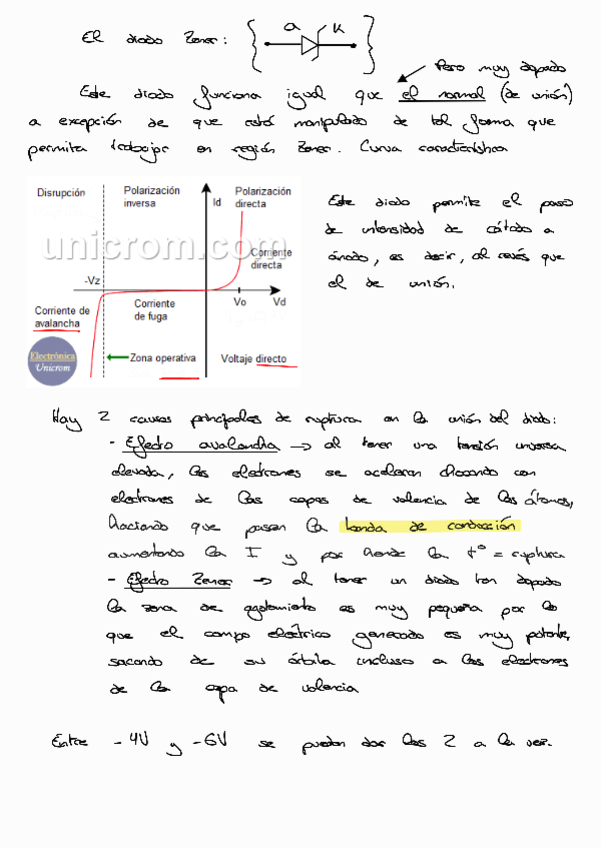 El diodo Zener: a K
Pero muy dopado
Este diodo funciona igual que el normal (de unión)
a excepción de que está manipulado de tal forma que
permita trabajar en región Zener. Curva característica
Disrupción
Polarización
inversa
Id
Polarización
directa
unicrom.com
Corriente
directa
-Vz
Vo
Vd
Corriente de
avalancha
Corriente
de fuga
Electrónica
Unicrom
Zona operativa
Voltaje directo
Este diodo permite el paso
de intensidad de cátodo a
ánodo, es decir, al revés que
el de unión.
Hay 2 causas principales de ruptura en la unión del diodo:
- Efecto avalancha -> al tener una tensión inversa
elevada, los electrones se aceleran chocando con
electrones de las capas de valencia de los átomos,
haciendo que pasen la banda de conducción
aumentando la I y por ende la tº = ruptura
- Efecto Zener -> al tener un diodo tan dopado
la zona de agotamiento es muy pequeña por lo
que el campo eléctrico generado es muy potente,
sacando de su órbita incluso a los electrones
de la capa de valencia
Entre -4V y -6V se pueden dar los 2 a la vez.